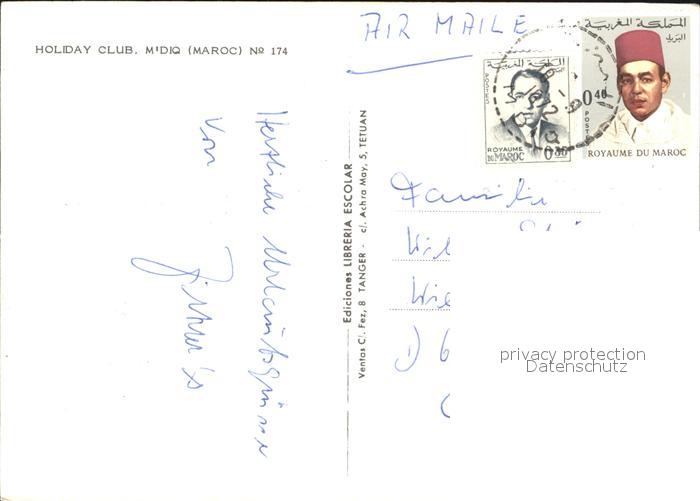 HOLIDAY CLUB. M'DIQ (MAROC) Nº 174
AIR MAILE
المملكة المغربية
البريد
0.40
POSTES
ROYAUME DU MAROC
المملكة المغربية
POSTES
ROYAUME
DU MAROC
Herzliche Urlaubsgrüsse
von
Ediciones LIBRERIA ESCOLAR
Ventas C/. Fez, 8 TANGER - c/. Achra May, 5, TETUAN
Familie
Wil
Wie
D 6
privacy protection
Datenschutz